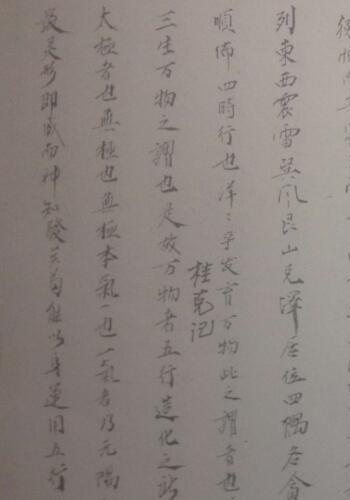 列東西震雷巽風艮山兌澤居位四隅各會
順佈四時行也洋洋乎发育万物此之謂者也
三生万物之謂也是故万物者五行造化之所
桂克记
太極者也無極也無極本氣一也一氣者乃元陽
是形即成而神知發 能以身運用五行